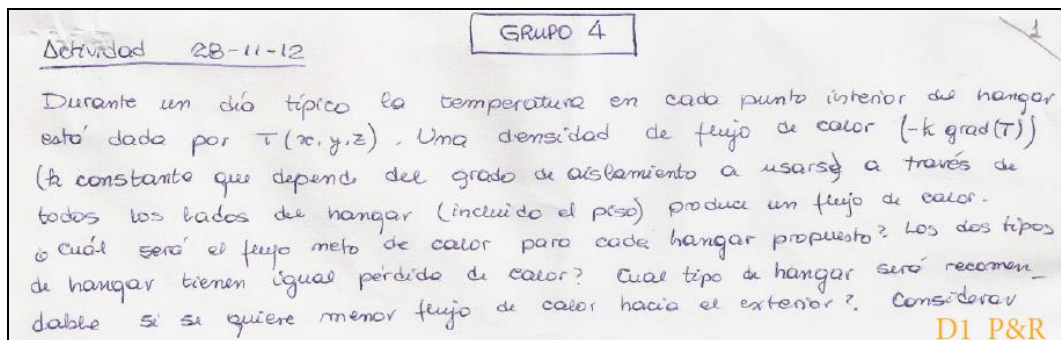 GRUPO 4
1
Actividad 28-11-12
Durante un día típico la temperatura en cada punto interior del hangar
está dada por T(x,y,z). Una densidad de flujo de calor (-k grad(T))
(k constante que depende del grado de aislamiento a usarse) a través de
todos los lados del hangar (incluido el piso) produce un flujo de calor.
¿Cuál será el flujo neto de calor para cada hangar propuesto? Los dos tipos
de hangar tienen igual pérdida de calor? Cual tipo de hangar será recomen_
dable si se quiere menor flujo de calor hacia el exterior?. Considerar
D1 P&R